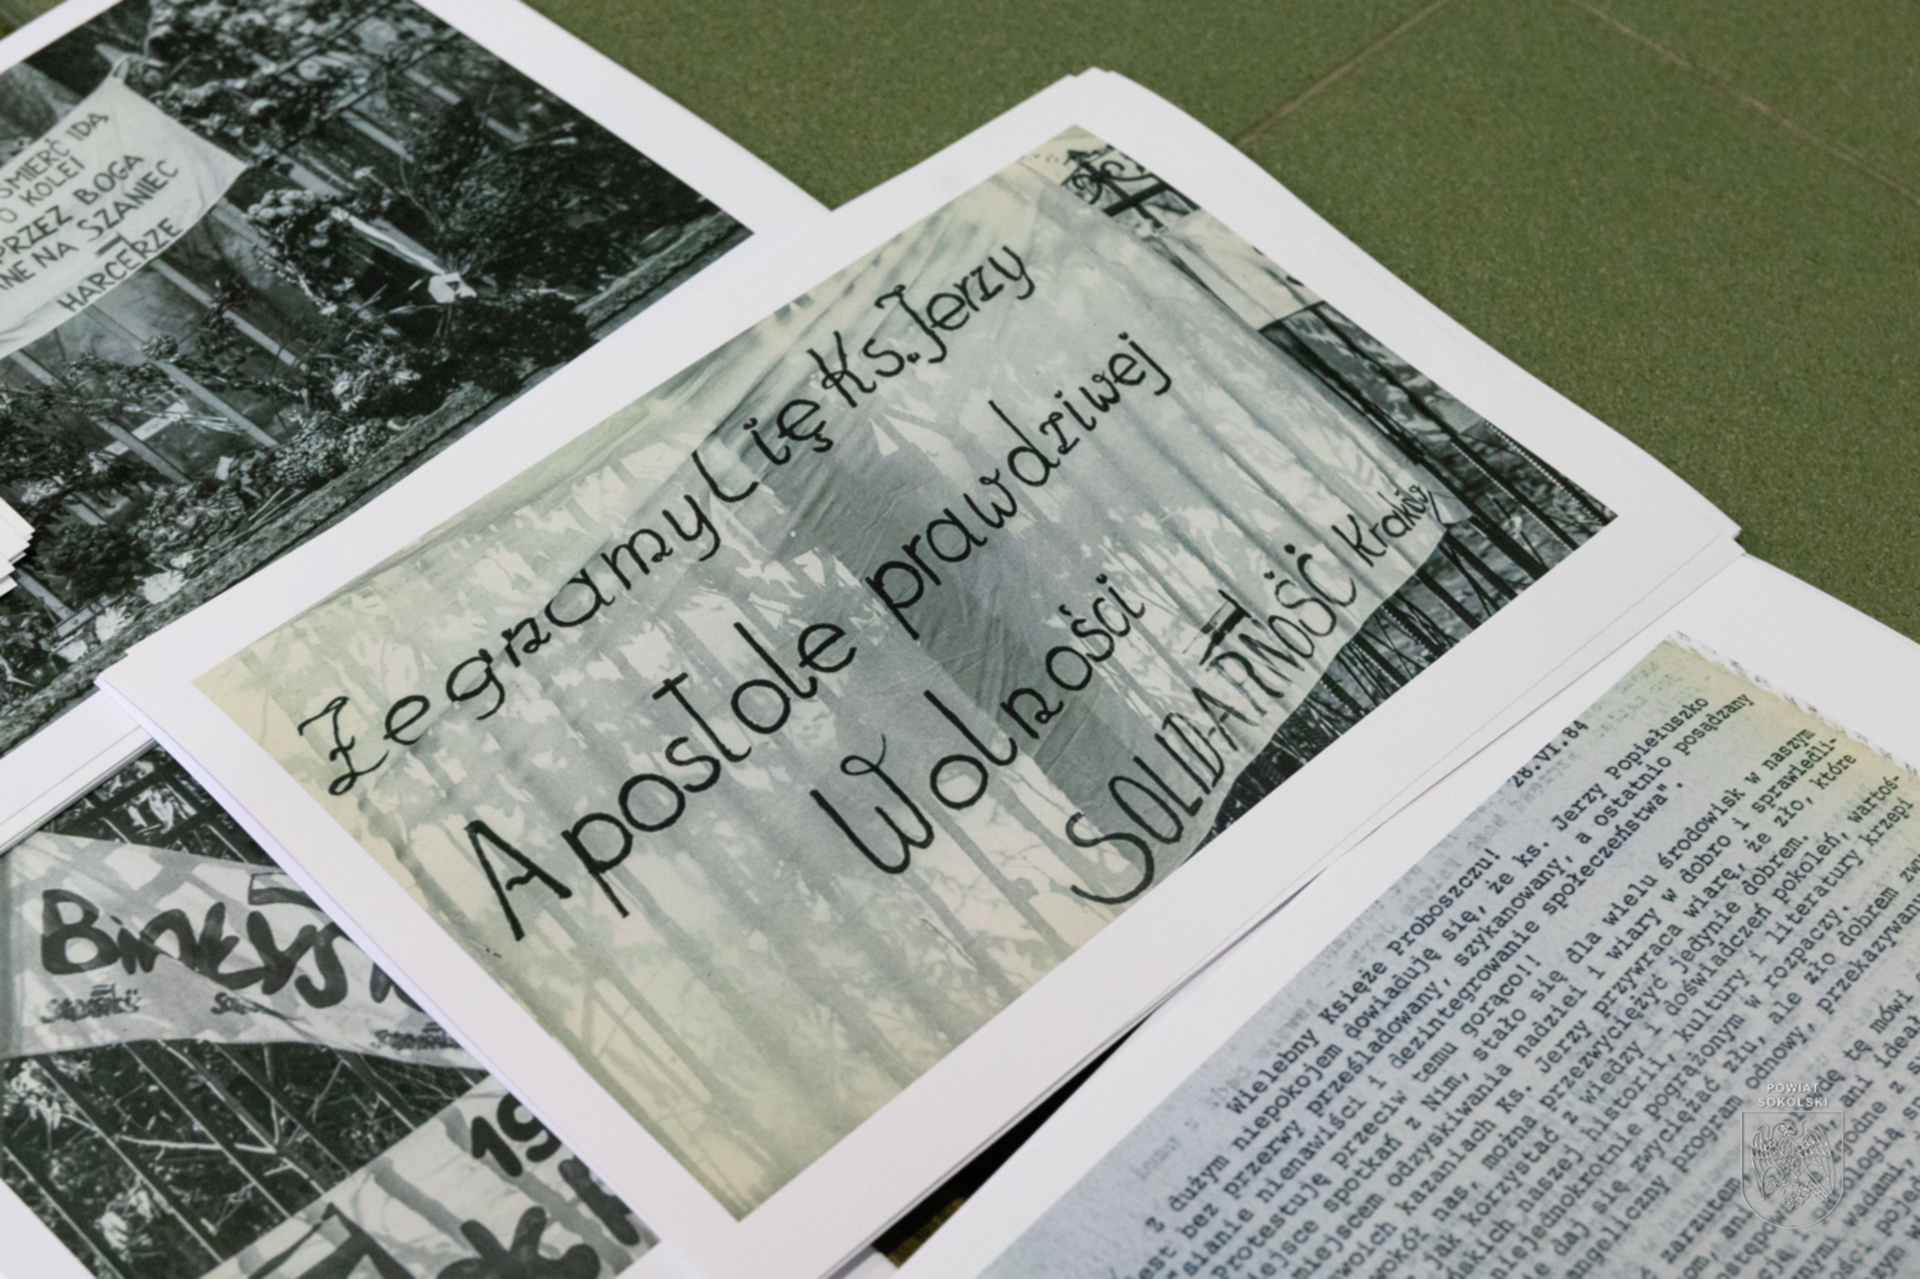 ŚMIERĆ IDĄ
O KOLEI
PRZEZ BOGA
NE NA SZANIEC
HARCERZE
Żegnamy Cię Ks. Jerzy
Apostole prawdziwej
Wolności
SOLIDARNOŚĆ Kraków
BiAŁYS
19
28.VI.84
Wielebny Księże Proboszczu!
Z dużym niepokojem dowiaduję się, że ks. Jerzy Popiełuszko
est bez przerwy prześladowany, szykanowany, a ostatnio posądzany
"sianie nienawiści i dezintegrowanie społeczeństwa".
Protestuję przeciw temu gorąco!!
ejsce spotkań z Nim, stało się dla wielu środowisk w naszym
miejscem odzyskiwania nadziei i wiary w dobro i sprawiedli-
woich kazaniach Ks. Jerzy przywraca wiarę, że zło, które
wokół nas, można przezwyciężyć jedynie dobrem.
jak korzystać z wiedzy i doświadczeń pokoleń, wartoś-
dakich naszej historii, kultury i literatury krzepi
niejednokrotnie pogrążonym w rozpaczy.
e daj się zwyciężać złu, ale zło dobrem zwy
angeliczny program odnowy, przekazywany
zarzutem
POWIAT
SOKÓLSKI